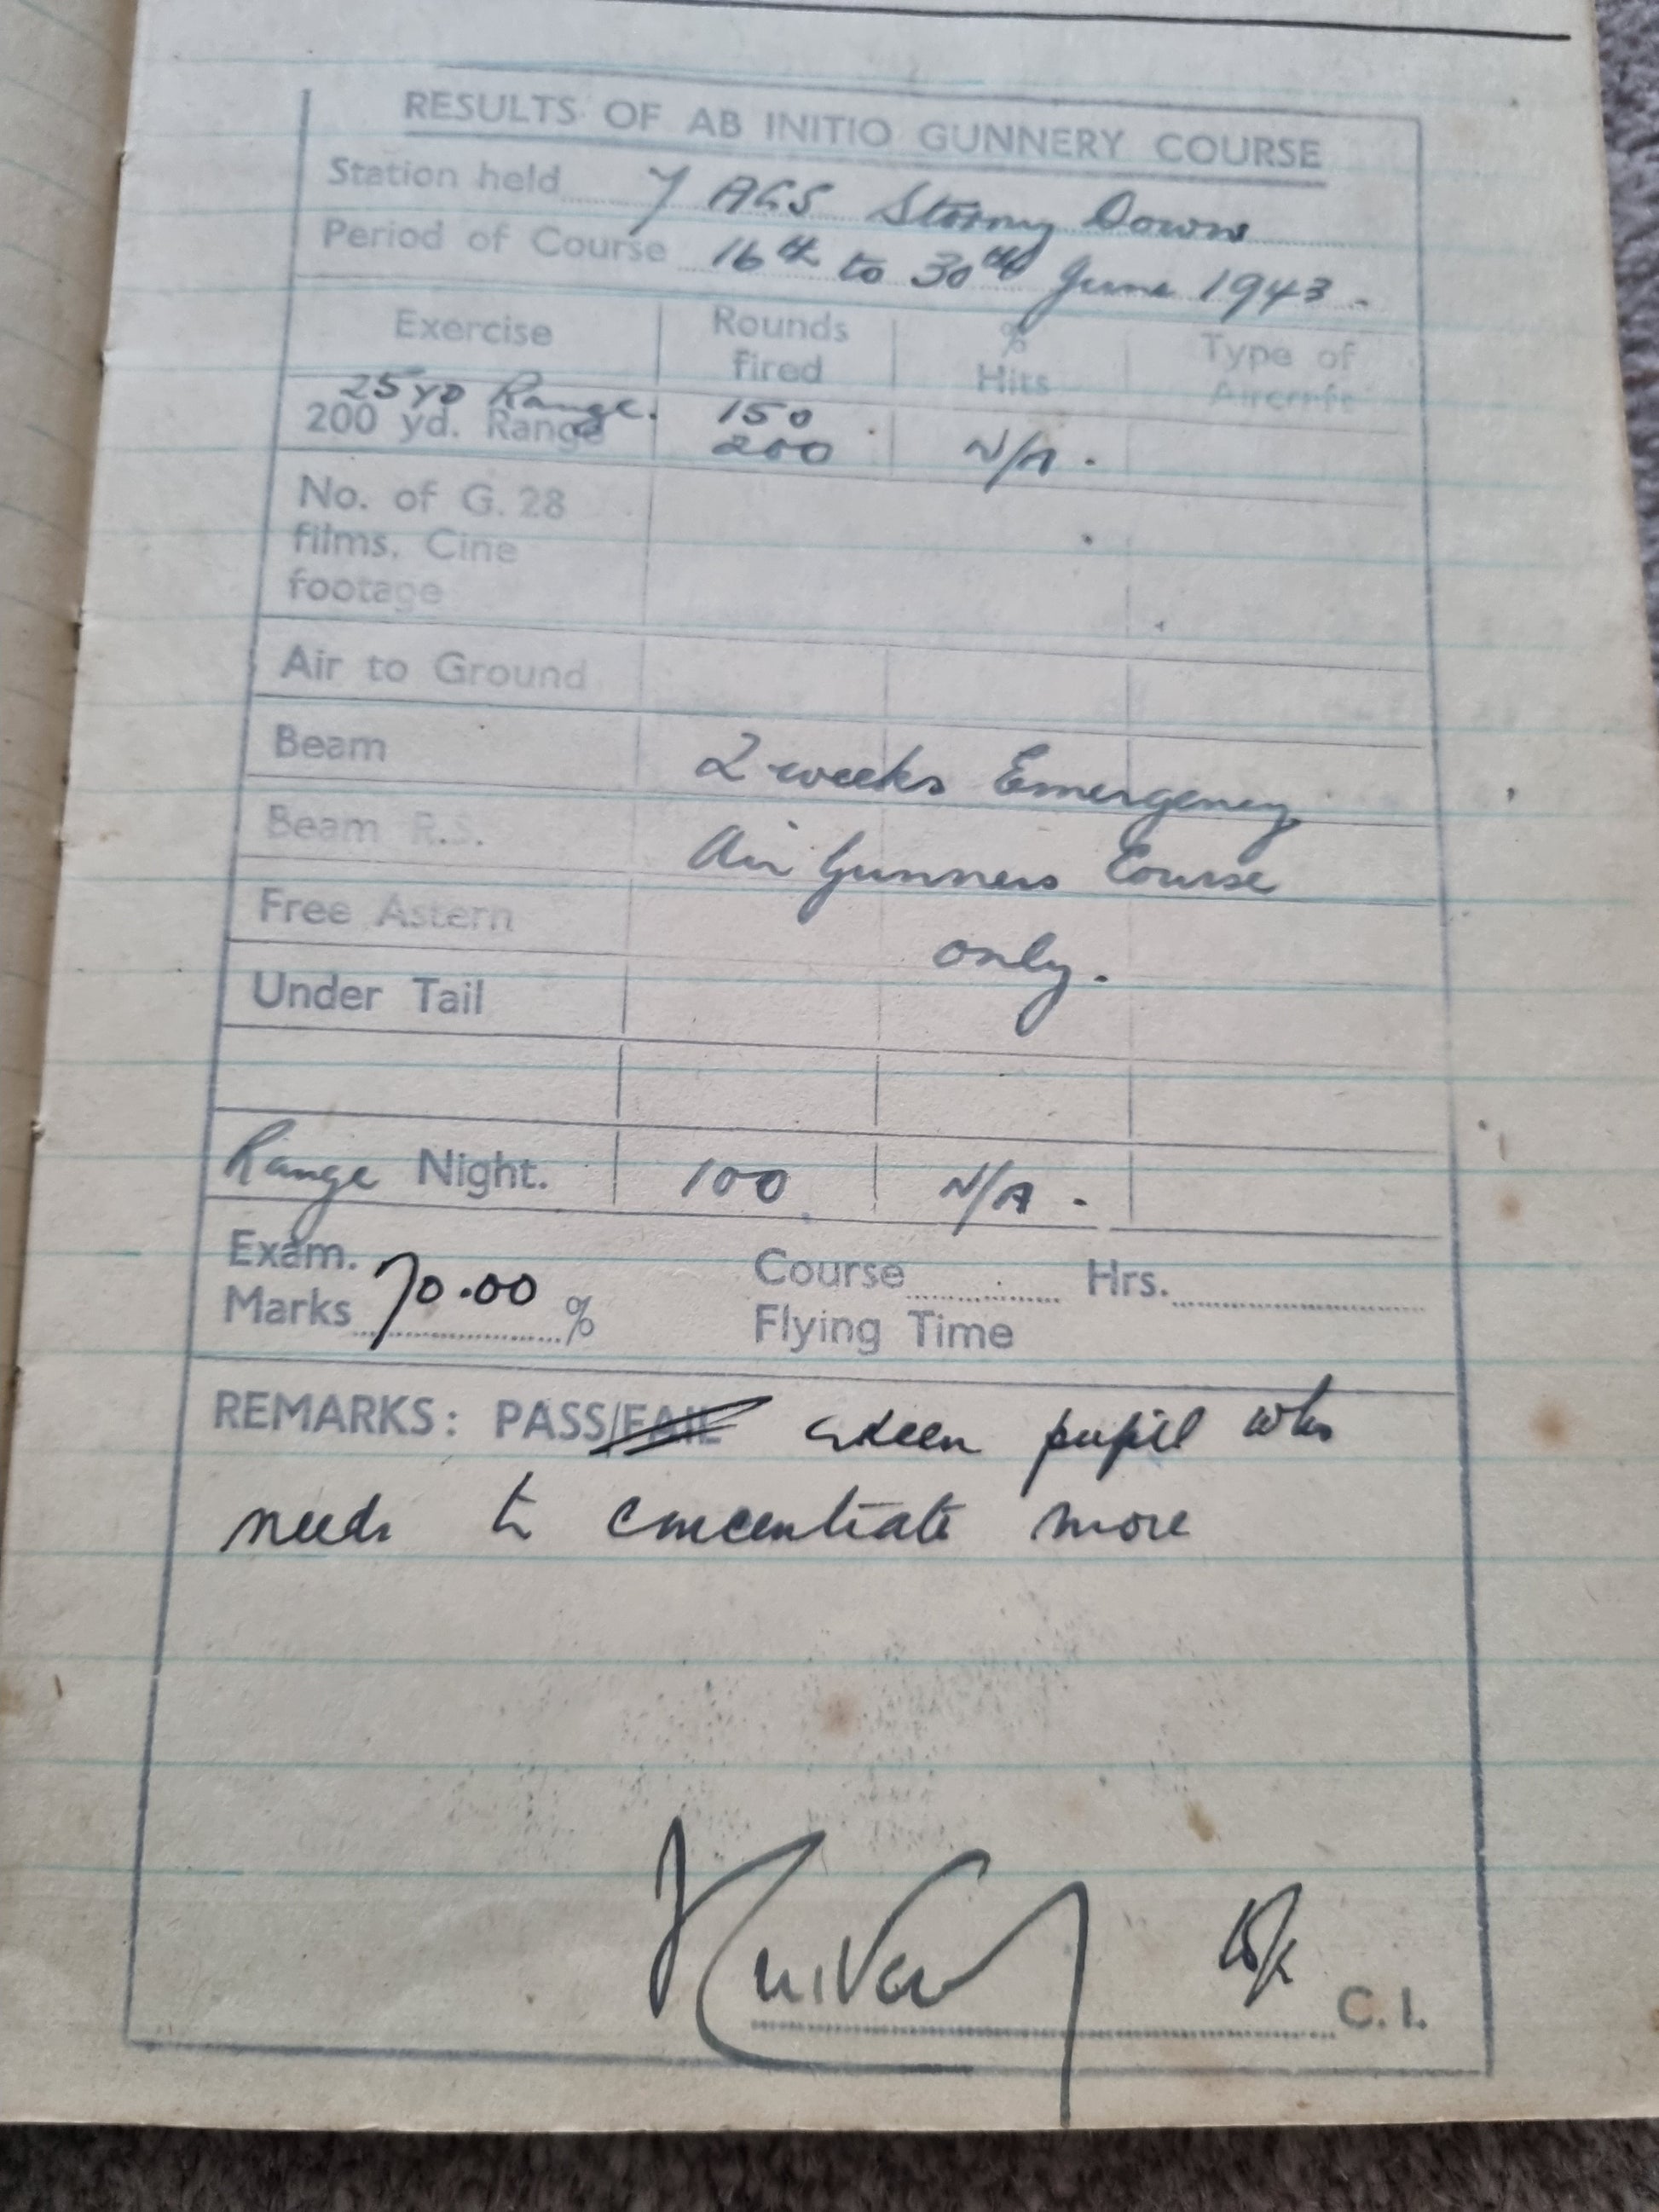 RESULTS OF AB INITIO GUNNERY COURSE
Station held 7 AGS Stormy Down
Period of Course 16th to 30th June 1943.
Exercise Rounds fired % Hits Type of Aircraft
25 YD Range. 150
200 yd. Range 200 N/A.
No. of G.28
films, Cine
footage
Air to Ground
Beam 2 weeks Emergency
Beam R.S. Air Gunners Course
Free Astern only.
Under Tail
Range Night. 100 N/A.
Exam. Marks 70.00 % Course Hrs.
Flying Time
REMARKS: PASS/FAIL keen pupil who
needs to concentrate more
C.I.